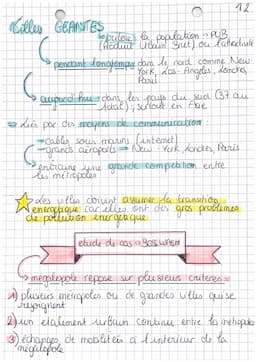 12
Villes GEANTES
par la population - PUB
(Produit Urbain Brut) ou l'attractivité
pendant longtemps dans le nord comme New
York, Los-Angeles, Londres,
Paris
aujourd'hui dans les pays du sud (37 au
total), surtout en Asie
Liés par des moyens de communication
cables sous marins (internet)
grands aéroports New York, Londres, Paris
entraine une grande competition entre
les métropoles
Les villes doivent assurer la transition
énergétique car elles ont des gros problèmes
de pollution énergétique
etude de cas : BOSWASH
megalopole repose sur plusieurs criteres :
1) plusieurs métropoles ou de grandes villes qui se
rejoignent
2) un étalement urbain continu entre les métropoles
3) échanges de mobilités à l'interieur de la
mégalopole